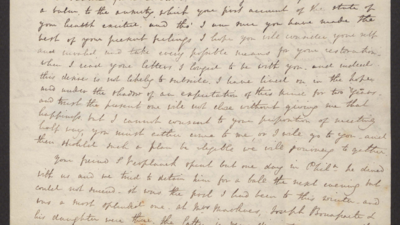 a burden to the anxiety which your poor account of the state of
your health excited and tho' I am sure you have made the
best of your present feelings I hope you will consider yourself
and take every possible means for your restoration
when I read your letters I longed to be with you, and indeed
this desire is not likely to subside I have lived on in the hopes
and under the shadow of an expectation of this kind for two years
and trust the present one will not close without giving me that
happiness but I cannot consent to your proposition of meeting
half way you must either come to me or I will go to you and
then should such a plan be eligible we will journey together
Your friend Verplanck spent but one day in Philad he dined
with us and we tried to detain him for a ball the next evening but
could not succeed it was the first I had been to this winter and
was a most splendid one at Mrs Joseph Bonaparte &
his daughter were there the latter is